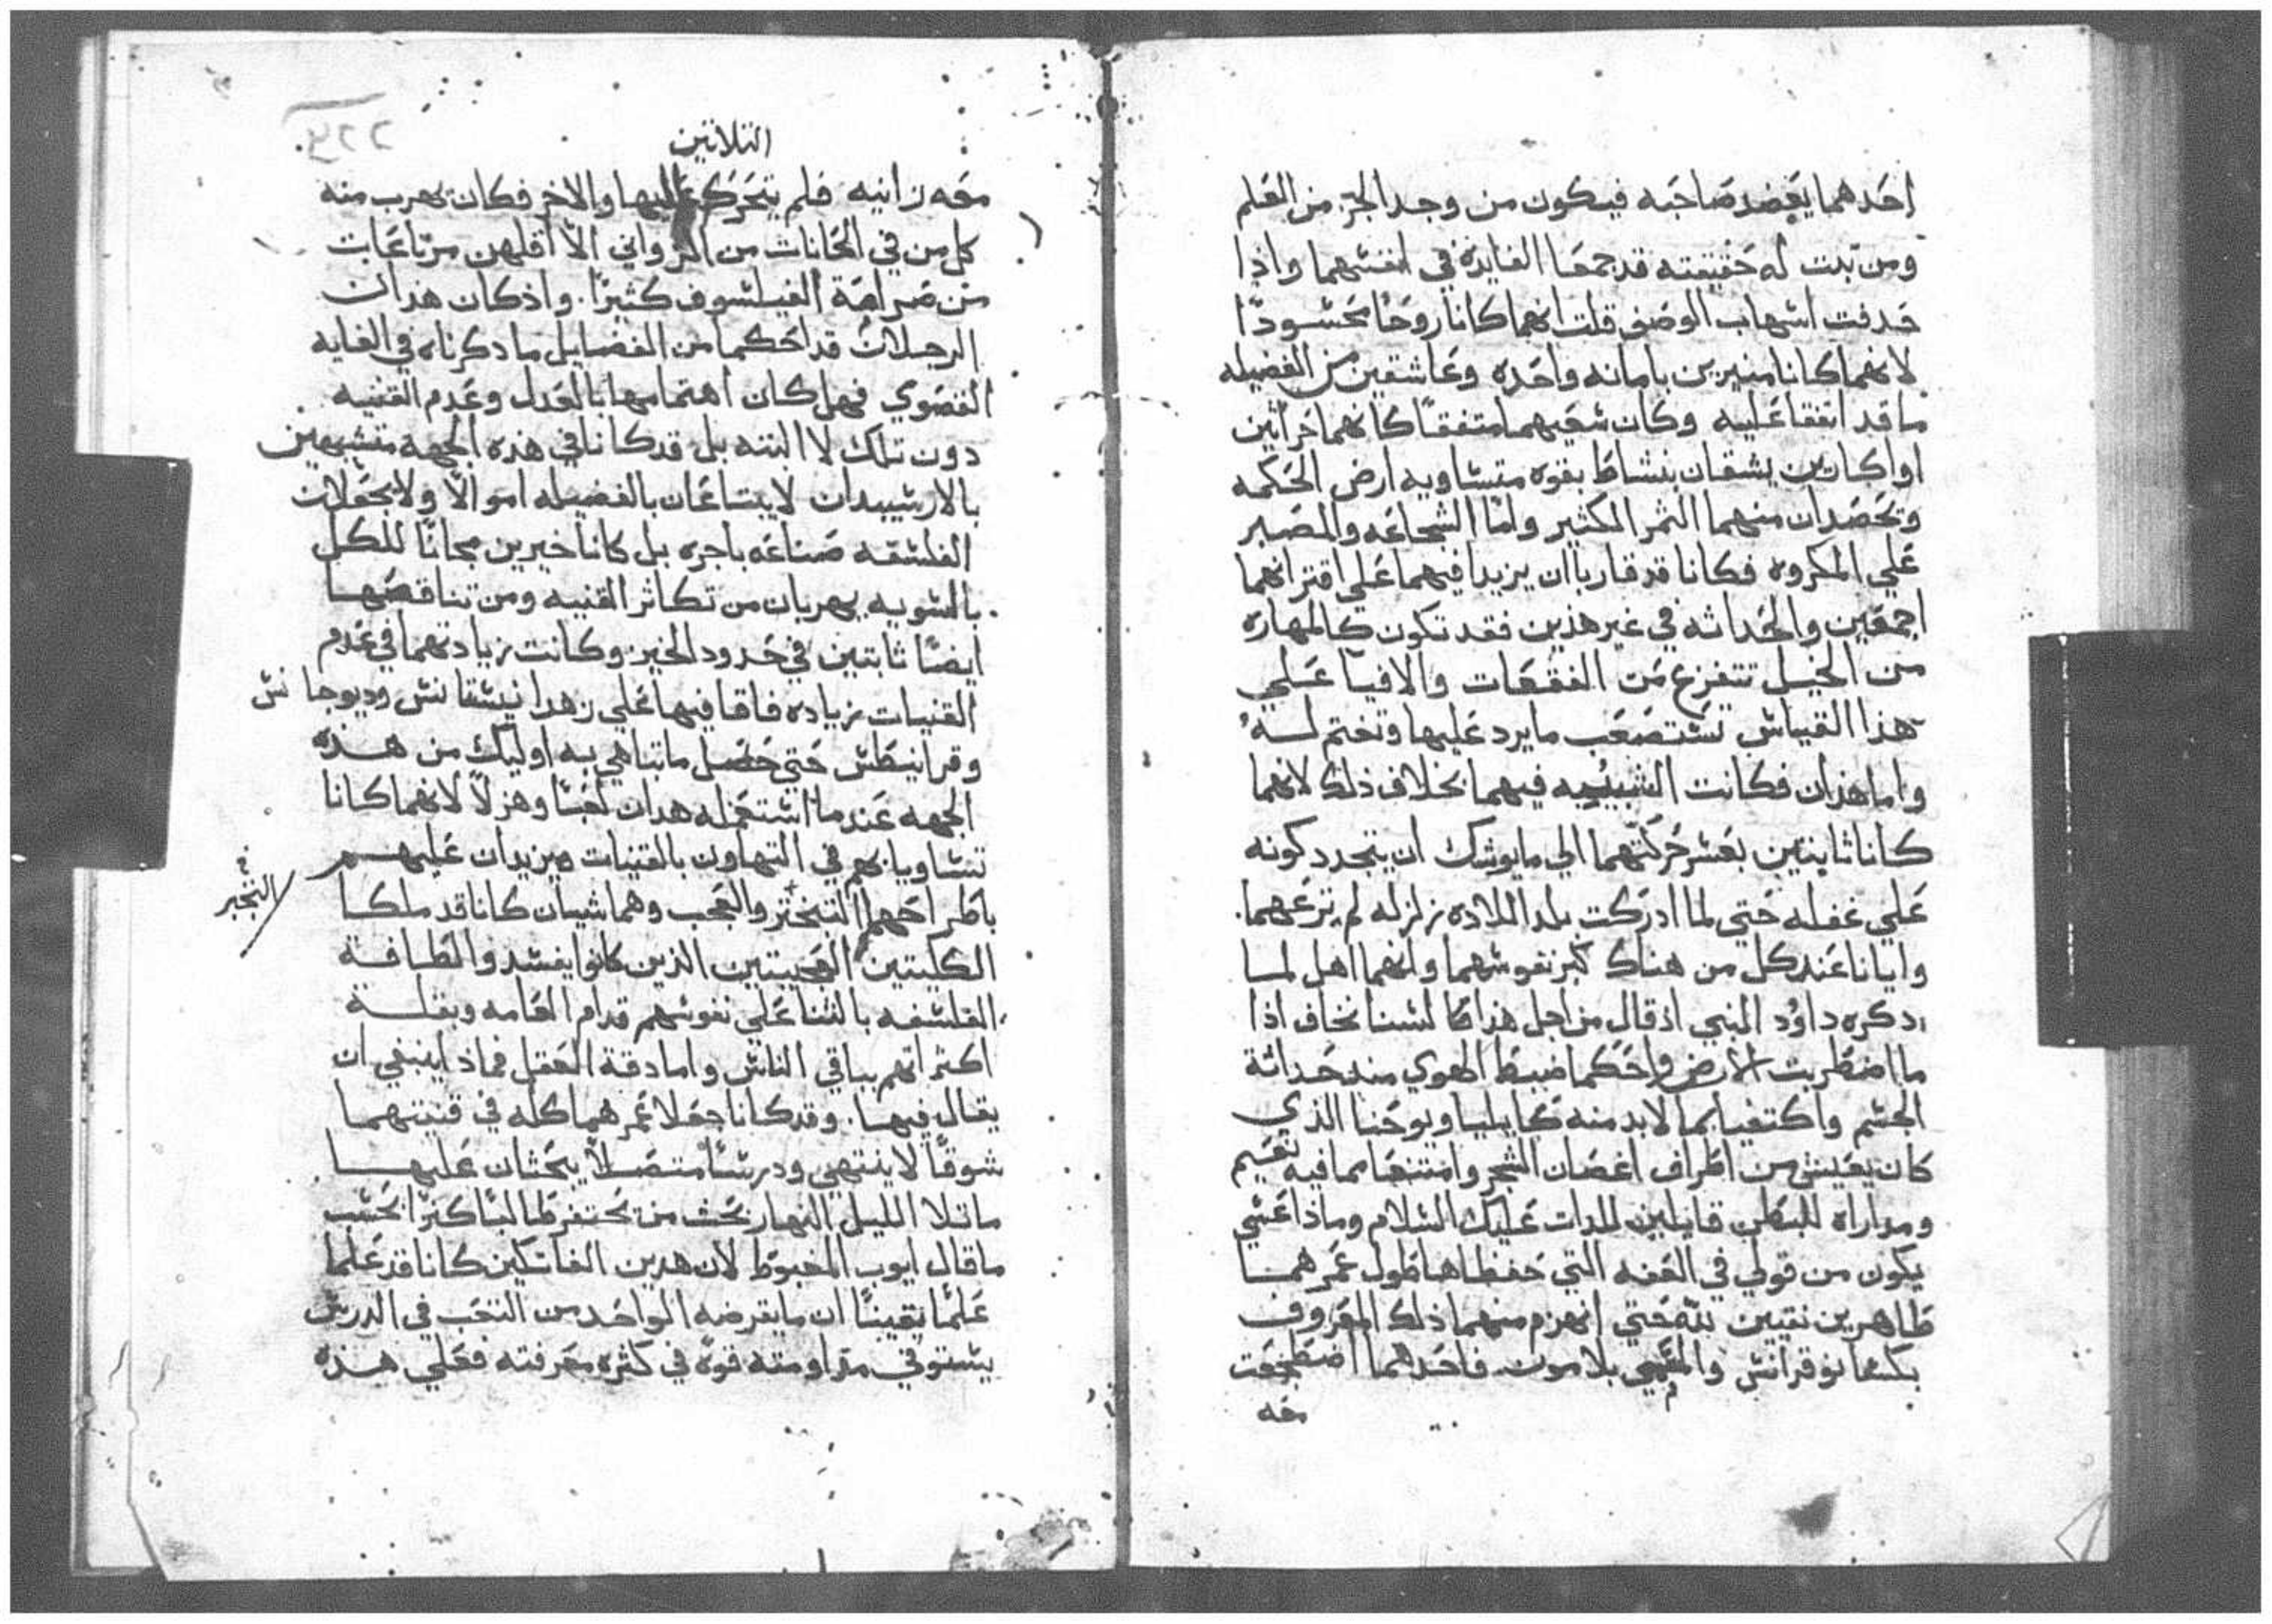 احَدهما يعَضد صَاحبَه فيكون من وجد الجز من العَلم
ومن تبت له حَقيقته قد جمعَا الفايدة في انفسهما واذا
حَدفت اسهاب الوصَف قلت انهما كانا روحًا مَحسودًا
لانهما كانا منيرين بامانه واحَده وعَاشقين من الفضيله
ما قد اتفقا عَليه وكان سَعَيهما متفقًا كانهما حَراثين
او اكارين يشقان بنشاط بقوه متساويه ارض الحَكمه
وتحَصَدان منهما الثمر الكثير واما الشجاعَه والصَبر
عَلي المكروه فكانا قد قاربا ان يزيدا فيهما عَلي اقترانهما
اجمعَين والحَداثه في غير هذين فقد تكون كالمهاره
من الخيل تتفزع من الفقعَات والافيا عَلي
هذا القياس تستصَعَب ما يرد عَليها وتختم له
واما هذان فكانت الشبيبيه فيهما بخلاف ذلك لانهما
كانا ثابتين بعَسر حَركتهما الي ما يوشك ان يتجدد كونه
عَلي غفله حَتي لما ادركت بلد اللاده زلزله لم ترعَهما
وابانا عَند كل من هناك كبر نفوسهما وانهما اهل لما
دكره داوُد النبي اذ قال من اجل هذا ما لسنا نخاف اذا
ما اضطربت الارض واحَكما ضبط الهوي منذ حَداثة
الجسم واكتفيا بما لابد منه كايليا ويوحَنا الذي
كان يعَيش من اطراف اغصَان الشجر وامتنعَا مما فيه نعَيم
ومداراه للبطن قايلين للدات عَليك السلام وماذا عَسي
يكون من قولي في العَفه التي حَفظاها طول عَمرهما
طاهرين نقيين بته حَتي انهزم منهما ذلك المعَروف
بكسانوقراتس والمتهي بلا موت فاحَدهما اضطجعَت
معَه
الثلاتين
معَه زانيه فلم يتحَرك اليها والاخر فكان يهرب منه
كل من في الحَانات من الزواني الا اقلهن مرتاعَات
من صَرامة الفيلسوف كثيرًا. واذ كان هذان
الرجلان قد احَكما من الفضايل ما دكرناه في الغايه
القصَوي فهل كان اهتمامها بالعَدل وعَدم القنيه
دون تلك لا البته بل قد كانا في هذه الجهه متشبهين
بالارسيدان لا يبتاعَان بالفضيله اموالًا ولا يجعَلان
الفلسفه صَناعَه باجره بل كانا خيرين مجانًا للكل
بالسويه يهربان من تكاثر القنيه ومن تناقصَها
ايضًا ثابتين في حَدود الخير وكانت زيادتهما في عَدم
القنيات زياده فاقا فيها عَلي زهد انيسقانس وديوجانس
وقرانيطس حَتي حَصَل ما تباهي به اوليك من هذه
الجهه عَندما استعَمله هدان لعَبًا وهزلًا لانهما كانا
تساويا بهم في التهاون بالقنيات ويزيدان عَليهم
باطراحَهما التبختر والعَجب وهما شيان كانا قد ملكا
التجبر
الكليتين العَجيبتين الذين كانوا يفسدوا لطافة
الفلسفه بالثنا عَلي نفوسهم قدام العَامه وبقلة
اكتراثهم بباقي الناس واما دقة العَقل فماذا ينبغي ان
يقال فيها. وقد كانا جعَلا عَمرهما كله في قنيتهما
شوقًا لا ينتهي ودرسًا متصَلًا يحَثان عَليهـا
ما تلا الليل النهار بحَث من يحَتفر طالبًا كنزًا بحَسب
ما قال ايوب المغبوط لان هدين الفاتكين كانا قد عَلما
عَلمًا يقينًا ان ما يقرضه الواحَد من التعَب في الدرس
يستوفي مقاومته قوة في كثره معَرفته فعَلي هذه